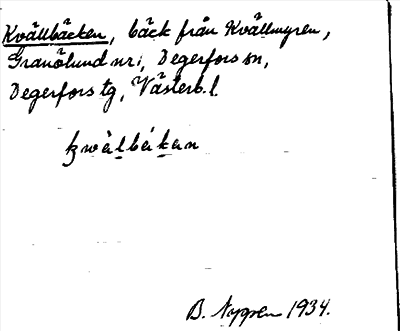 Kvällbäcken, bäck från Kvällmyren,
Granölund nr 1, Degerfors sn,
Degerfors tg, Västerb. l.
B. Nygren 1934.